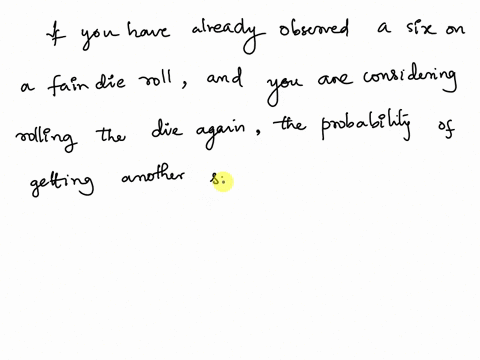 If you have already observed a six on
a fair die roll, and you are considering
rolling the die again, the probability of
getting another s